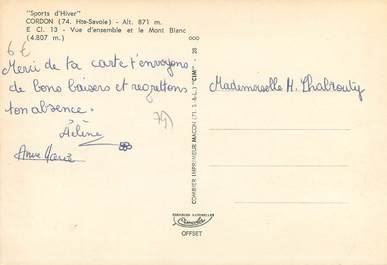 "Sports d'Hiver"
CORDON (74. Hte-Savoie) - Alt. 871 m.
E Cl. 13 - Vue d'ensemble et le Mont Blanc
(4.807 m.)
6 €
Merci de ta carte t'envoyons
de bons baisers et regrettons
ton absence.
Hélène
Anne Marie
74)
COMBIER IMPRIMEUR MACON (71. S.&L.) "CIM"
000
28
Mademoiselle M.
OFFSET